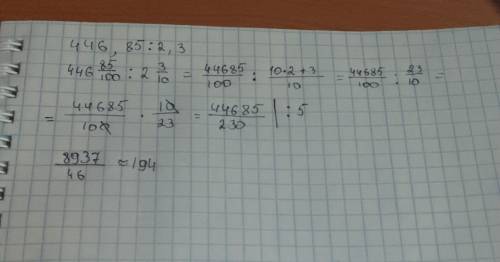 446,85:2,3
446 85/100 : 2 3/10 = 44685/100 : 10·2+3/10 = 44685/100 : 23/10 =
= 44685/100 · 10/23 = 44685/230 | :5
8937/46 ≈194